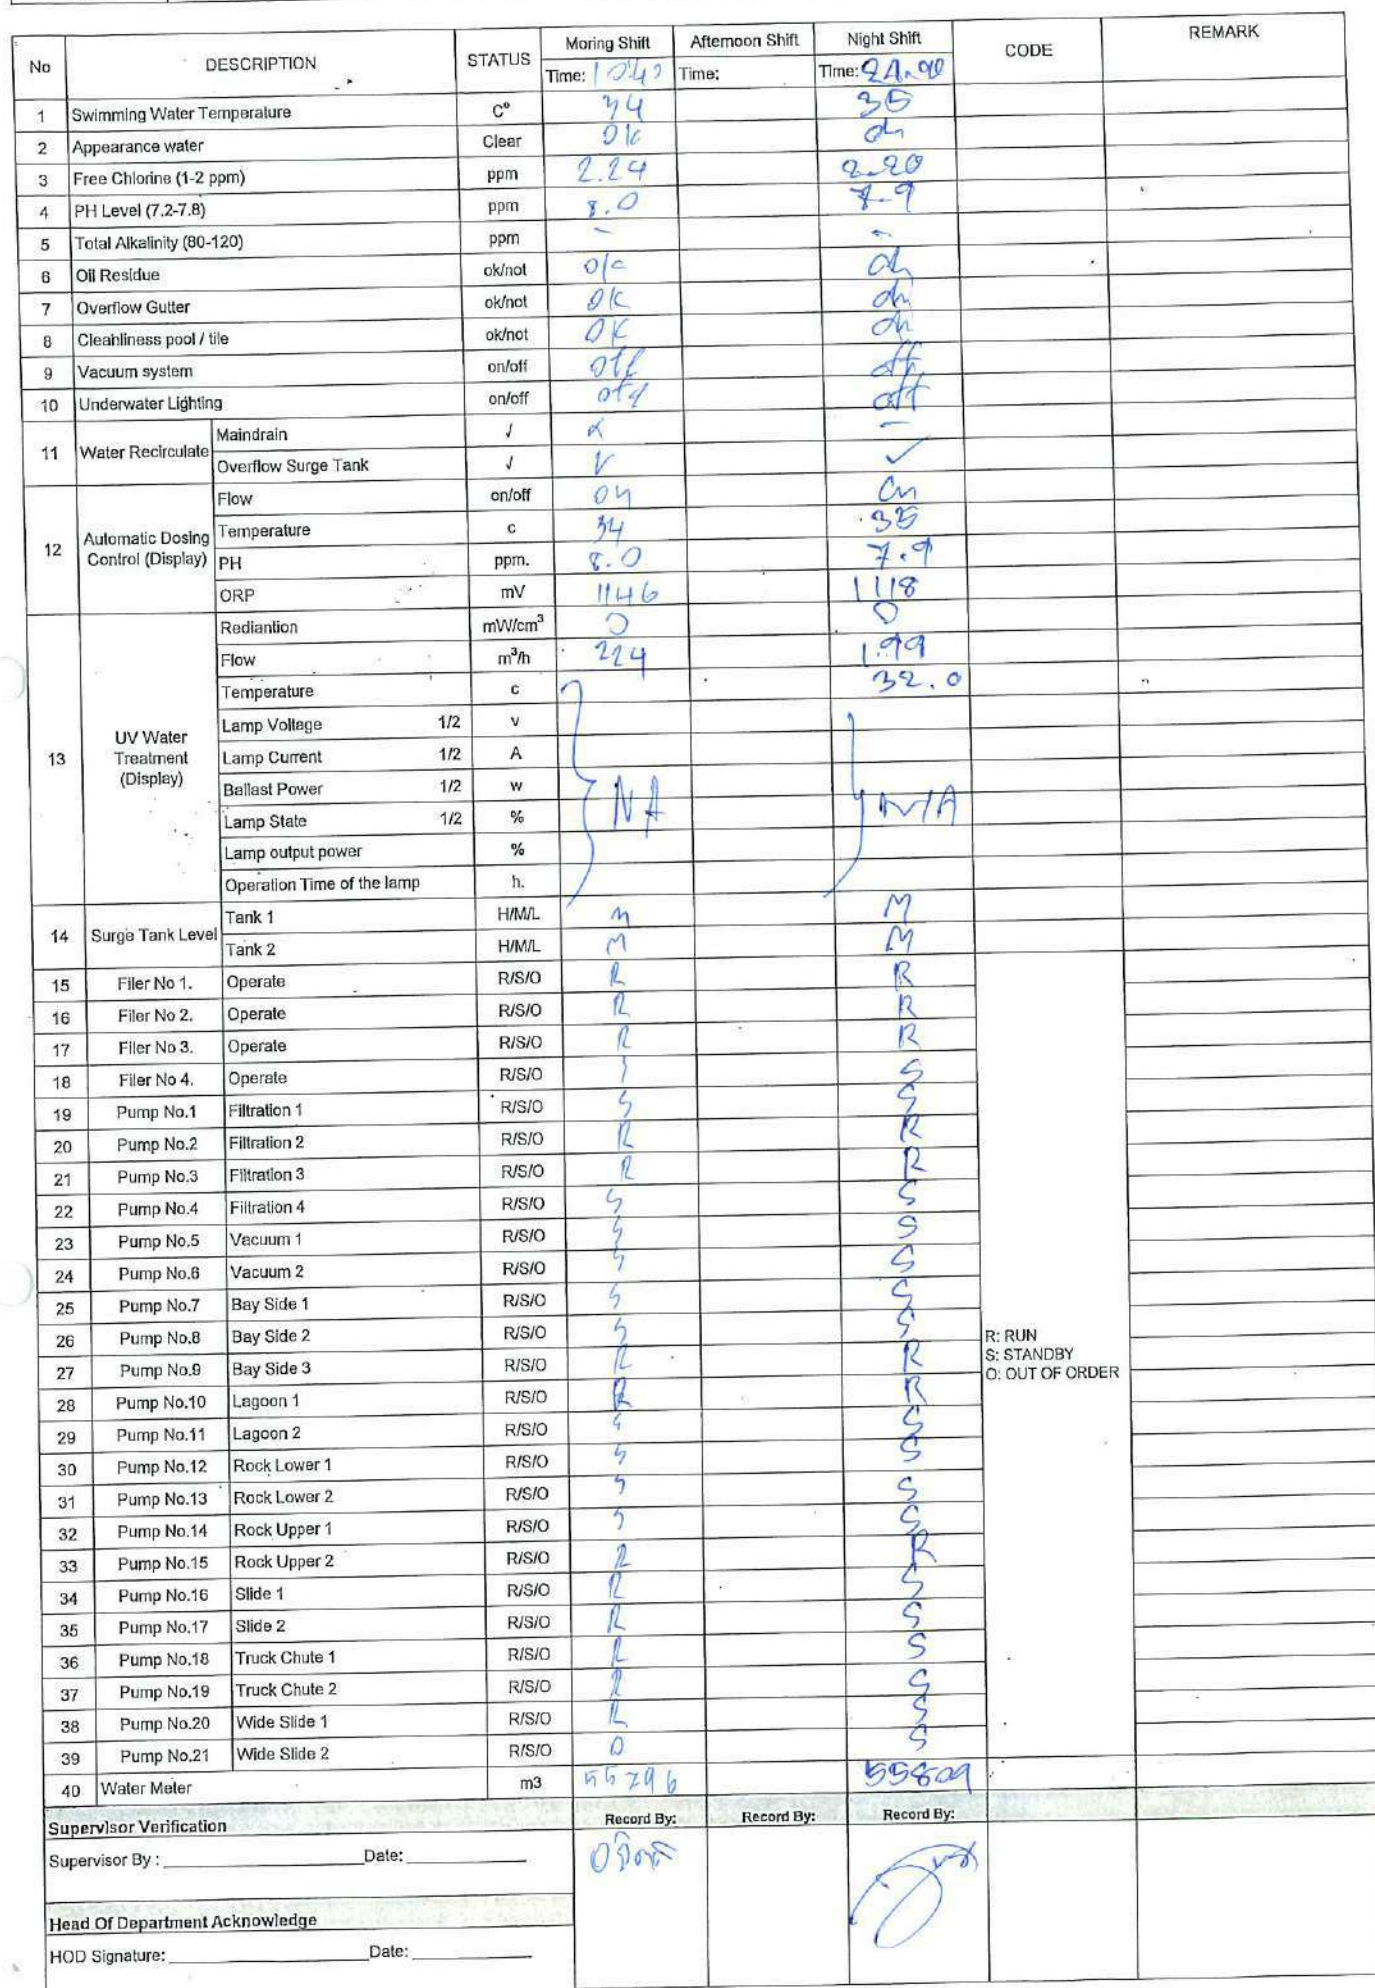 No DESCRIPTION STATUS Moring Shift Afternoon Shift Night Shift CODE REMARK
Time: Time: Time:
1 Swimming Water Temperature C° 34 35
2 Appearance water Clear OK oh
3 Free Chlorine (1-2 ppm) ppm 2.24 2.20
4 PH Level (7.2-7.8) ppm 8.0 7.9
5 Total Alkalinity (80-120) ppm - -
6 Oil Residue ok/not ok oh
7 Overflow Gutter ok/not OK oh
8 Cleahliness pool / tile ok/not OK oh
9 Vacuum system on/off off off
10 Underwater Lighting on/off off off
11 Water Recirculate Maindrain √ -
Overflow Surge Tank √ ✓ ✓
12 Automatic Dosing Control (Display) Flow on/off on on
Temperature c 34 35
PH ppm. 8.0 7.9
ORP mV 1146 1118
13 UV Water Treatment (Display) Rediantion mW/cm³ 0 0
Flow m³/h 224 1.99
Temperature c 32.0
Lamp Voltage 1/2 v
Lamp Current 1/2 A
Ballast Power 1/2 w
Lamp State 1/2 % NA N/A
Lamp output power %
Operation Time of the lamp h.
14 Surge Tank Level Tank 1 H/M/L M M
Tank 2 H/M/L M M
15 Filer No 1. Operate R/S/O R R
16 Filer No 2. Operate R/S/O R R
17 Filer No 3. Operate R/S/O R R
18 Filer No 4. Operate R/S/O S S
19 Pump No.1 Filtration 1 R/S/O S S
20 Pump No.2 Filtration 2 R/S/O R R
21 Pump No.3 Filtration 3 R/S/O R R
22 Pump No.4 Filtration 4 R/S/O S S
23 Pump No.5 Vacuum 1 R/S/O S S
24 Pump No.6 Vacuum 2 R/S/O S S
25 Pump No.7 Bay Side 1 R/S/O S S
26 Pump No.8 Bay Side 2 R/S/O S S
R: RUN
27 Pump No.9 Bay Side 3 R/S/O R R
S: STANDBY
O: OUT OF ORDER
28 Pump No.10 Lagoon 1 R/S/O R R
29 Pump No.11 Lagoon 2 R/S/O S S
30 Pump No.12 Rock Lower 1 R/S/O S S
31 Pump No.13 Rock Lower 2 R/S/O S S
32 Pump No.14 Rock Upper 1 R/S/O S S
33 Pump No.15 Rock Upper 2 R/S/O R R
34 Pump No.16 Slide 1 R/S/O R S
35 Pump No.17 Slide 2 R/S/O R S
36 Pump No.18 Truck Chute 1 R/S/O R S
37 Pump No.19 Truck Chute 2 R/S/O R S
38 Pump No.20 Wide Slide 1 R/S/O R S
39 Pump No.21 Wide Slide 2 R/S/O O S
40 Water Meter m3 55796 55809
Supervisor Verification Record By: Record By: Record By:
Supervisor By : Date:
Head Of Department Acknowledge
HOD Signature: Date: